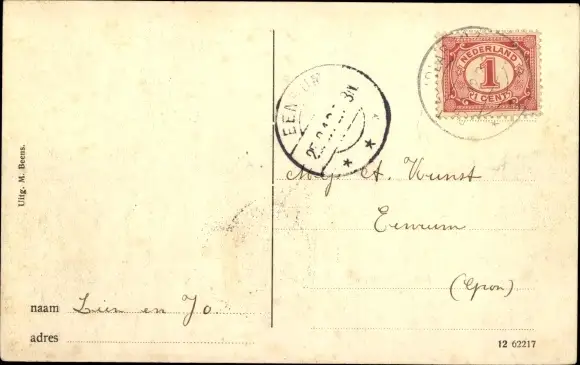 NEDERLAND
1
1 CENT
EENRUM
Uitg. M. Beens.
A. Kunst
Eenrum
(Gron).
naam Lien en Jo.
adres
12 62217